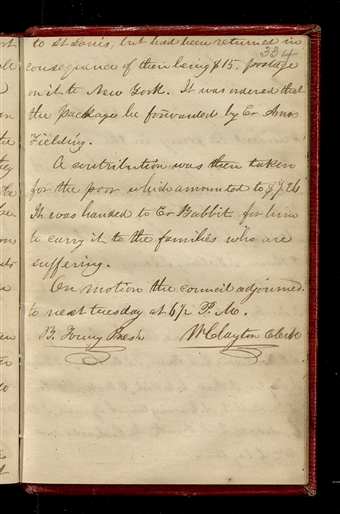 334
to St Louis, but had been returned in
consequence of there being $15. postage
on it to New York. It was ordered that
the package be forwarded by Er Amos
Fielding.
A contribution was then taken
for the poor which amounted to $7.26
It was handed to Er Babbit for him
to carry it to the families who are
suffering.
On motion the council adjourned
to next tuesday at 6½ P.M.
B. Young Prest
W. Clayton Clerk